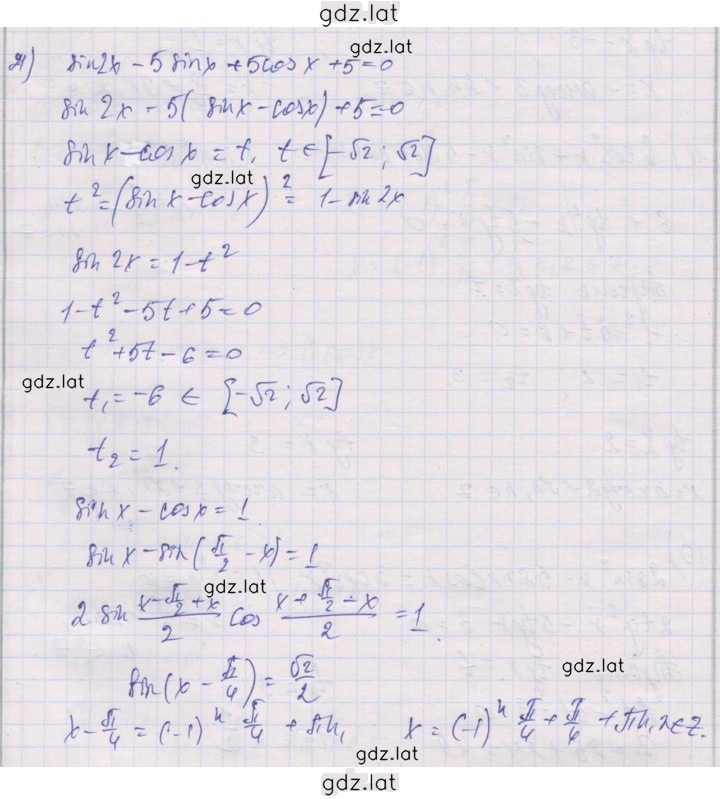 gdz.lat
г) sin2x - 5sinx + 5cosx + 5 = 0
sin 2x - 5( sinx - cosx) + 5 = 0
sin x - cos x = t, t ∈ [-√2 ; √2]
gdz.lat
t² = (sin x - cos x)² = 1 - sin 2x
sin 2x = 1 - t²
1 - t² - 5t + 5 = 0
t² + 5t - 6 = 0
gdz.lat
t₁ = -6 ∈ [-√2 ; √2]
t₂ = 1.
sin x - cos x = 1.
sin x - sin(π/2 - x) = 1
gdz.lat
2 sin (x - π/2 + x)/2 cos (x + π/2 - x)/2 = 1.
gdz.lat
sin(x - π/4) = √2/2
x - π/4 = (-1)ⁿ π/4 + πn, x = (-1)ⁿ π/4 + π/4 + πn, n ∈ Z.
gdz.lat
gdz.lat